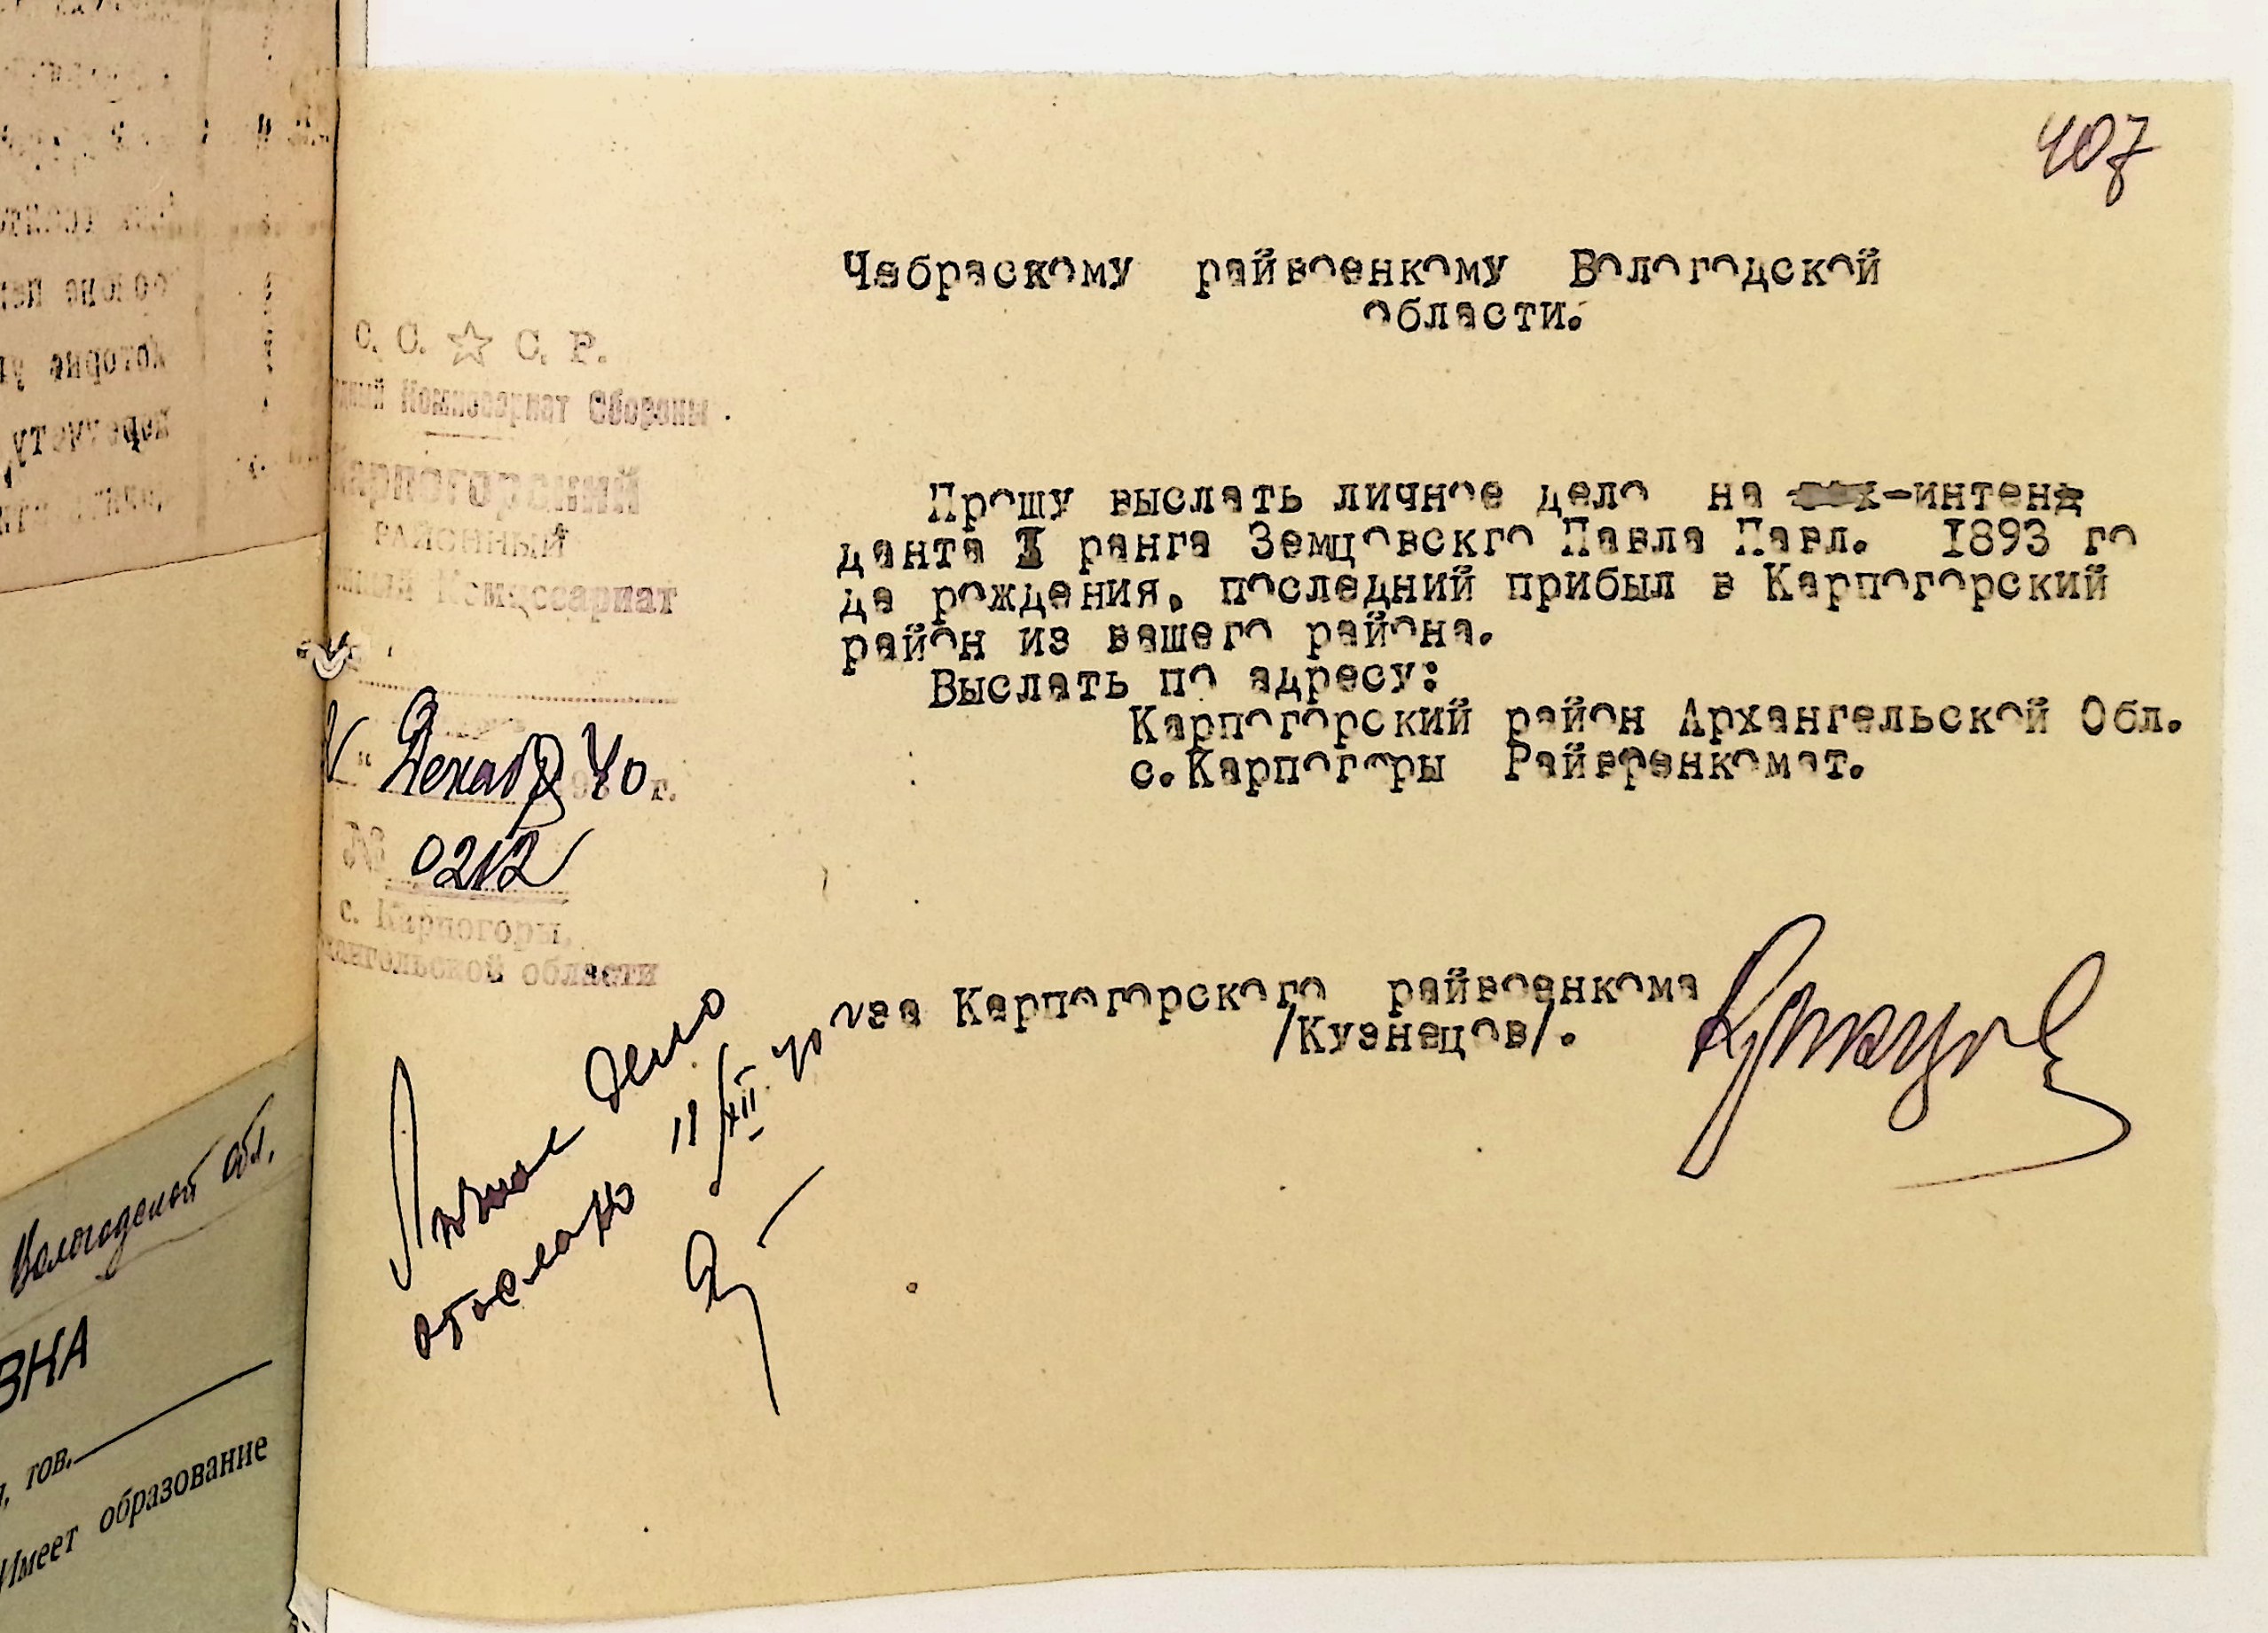 407
Чебраскому райвоенкому Вологодской
области.
С. С. С. Р.
Комиссариат Обороны
Карпогорский
РАЙОННЫЙ
Комиссариат
Декабр 40 г.
№ 0212
с. Карпогоры,
Архангельской области
Прошу выслать личное дело на -интенд
данта I ранга Земцовскго Павла Павл. 1893 го
да рождения, последний прибыл в Карпогорский
район из вашего района.
Выслать по адресу:
Карпогорский район Архангельской Обл.
с.Карпогоры Райвренкомат.
за Карпогорского райвоенкома
/Кузнецов/.
Личное дело
отослано 11/XII 40
Вологодской обл.
ВКА
тов.
Имеет образование